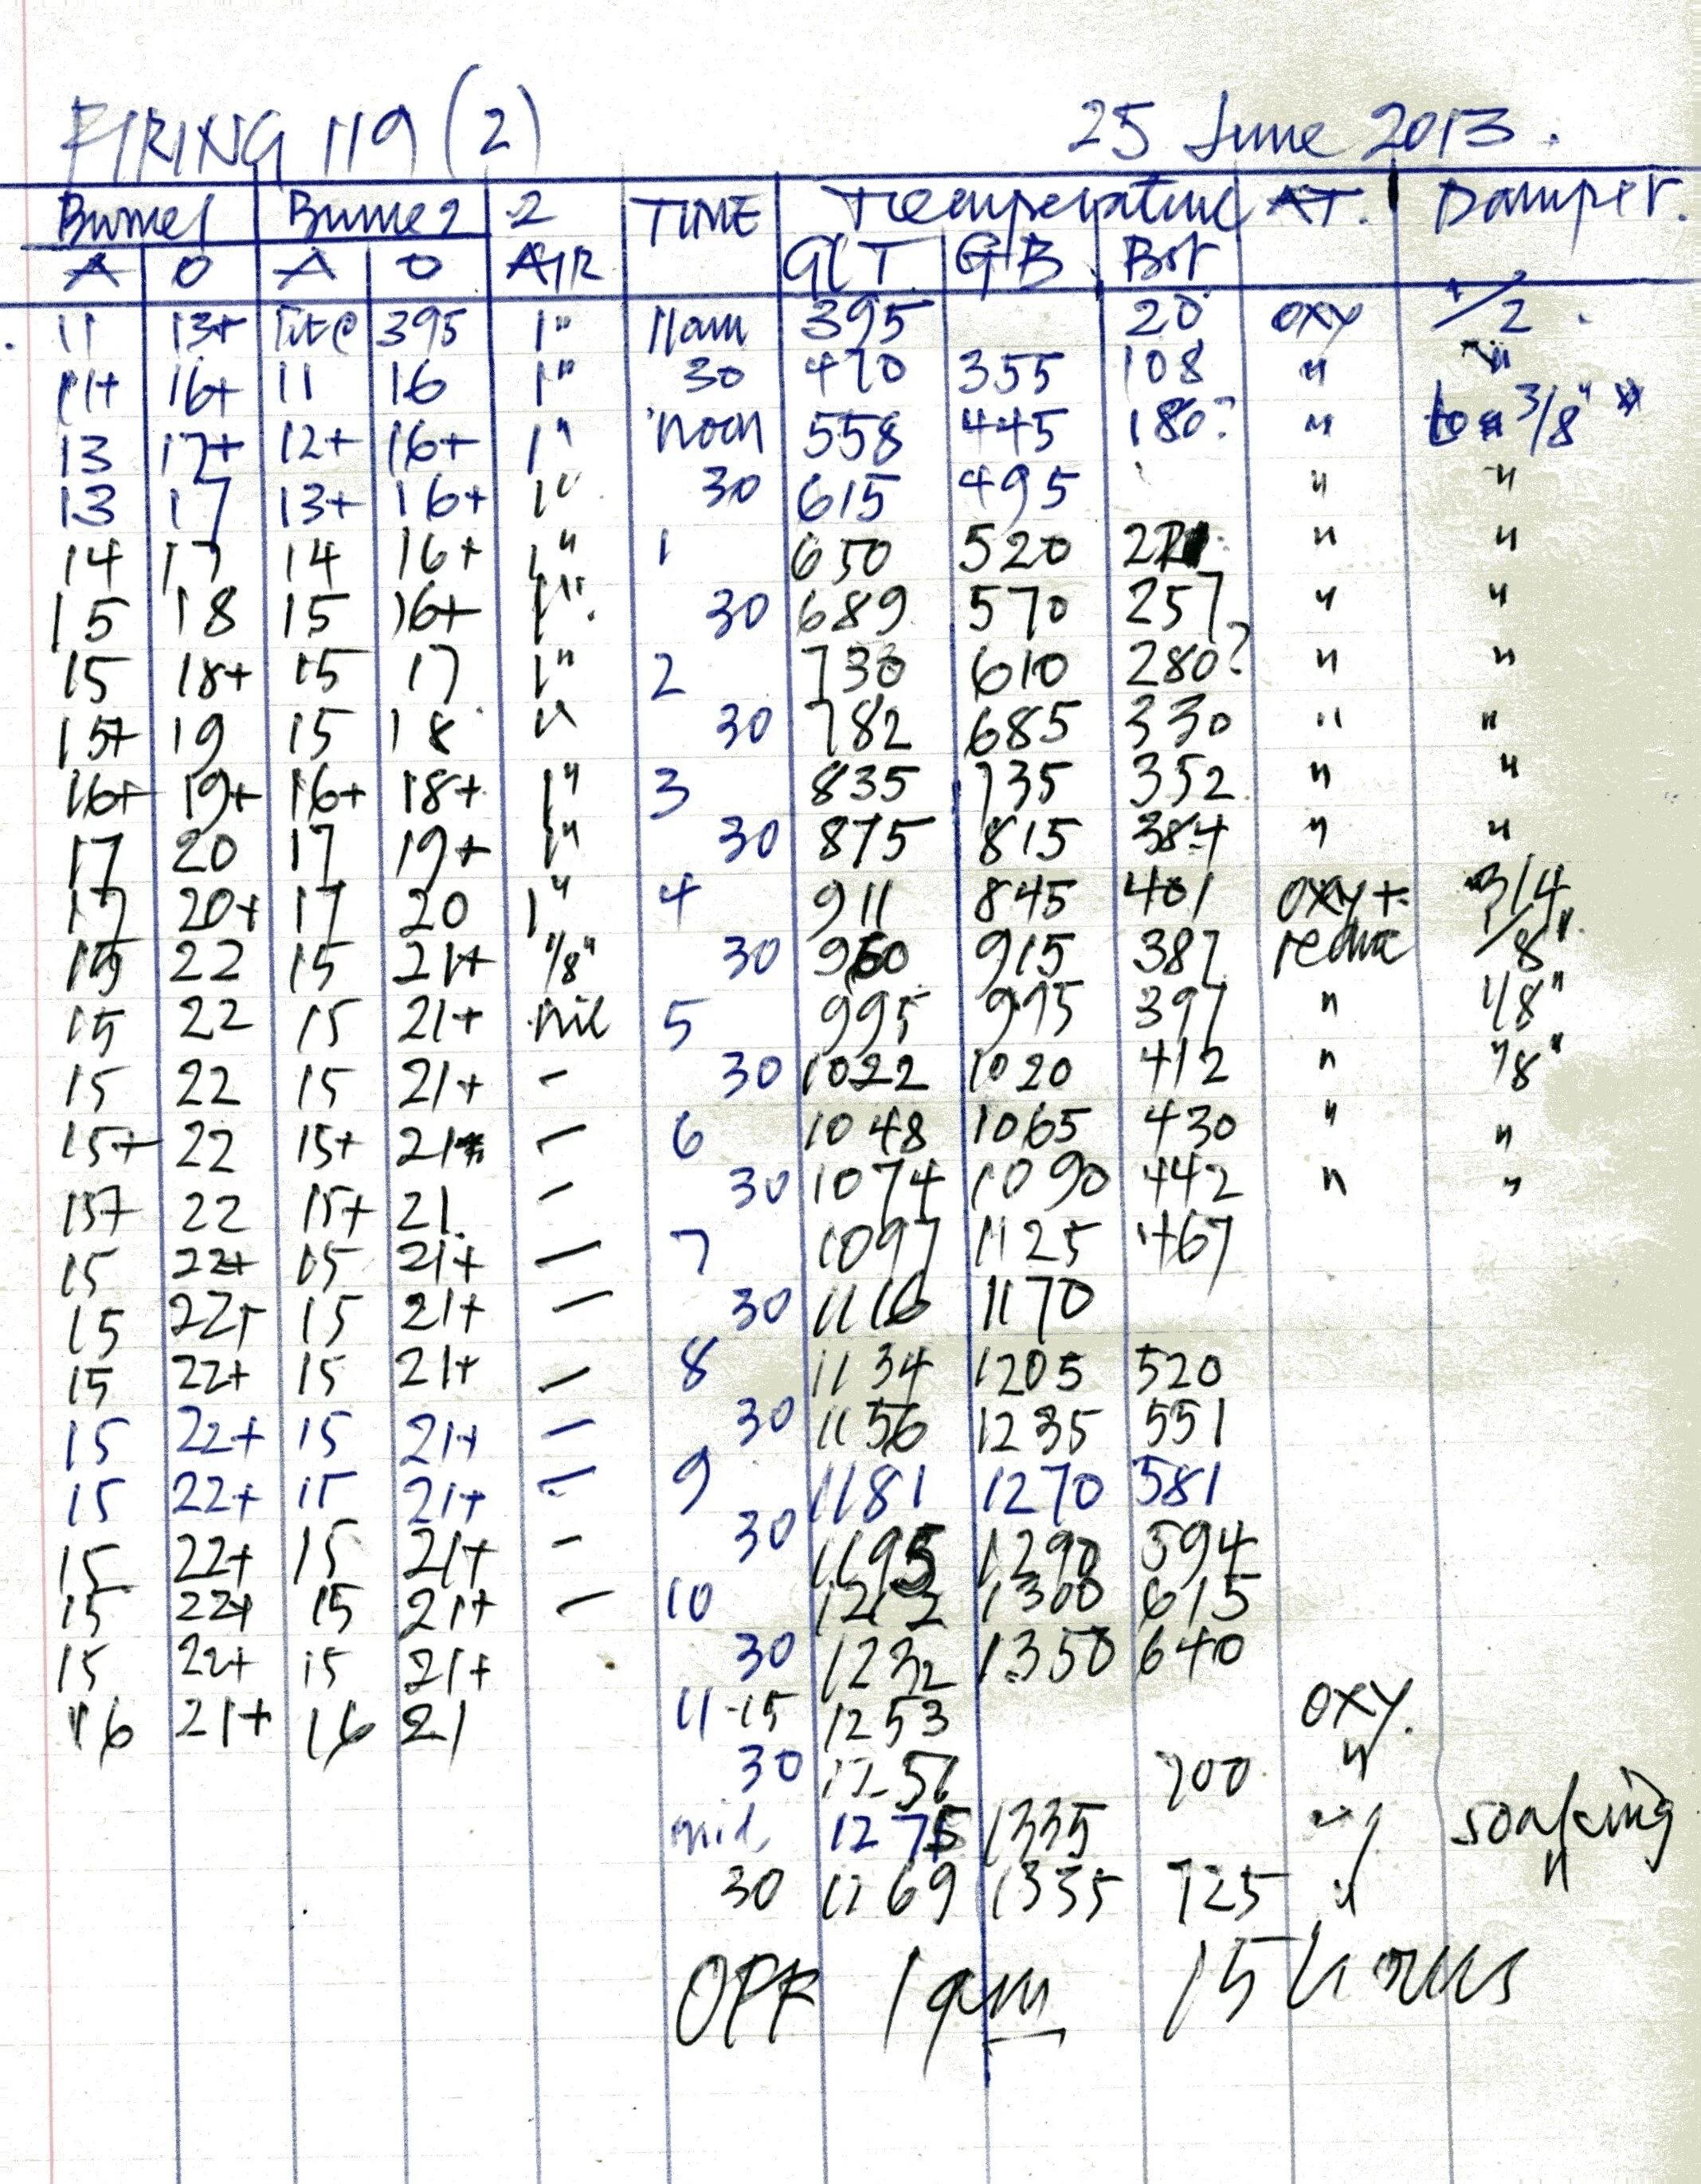 FIRING 119 (2) 25 June 2013.
Burner 1 Burner 2 2 TIME Temperature AT. Damper.
A O A O AIR GLT GB Bot
11 13+ 395 1" 11am 395 20 oxy 1/2
11+ 16+ 11 16 1" 30 470 355 108 " "
13 17+ 12+ 16+ 1" noon 558 445 180? " to 3/8"
13 17 13+ 16+ 1" 30 615 495 " "
14 17 14 16+ 1" 1 650 520 " "
15 18 15 16+ 1" 30 689 570 257 " "
15 18+ 15 17 1" 2 730 610 280? " "
15+ 19 15 18 " 30 782 685 330 " "
16+ 19+ 16+ 18+ 1" 3 835 735 352 " "
17 20 17 19+ 1" 30 875 815 384 " "
17 20+ 17 20 1" 4 911 845 401 oxy+ 3/4
15 22 15 21+ 1/8" 30 960 915 387 reduc 1/8"
15 22 15 21+ nil 5 995 995 397 " 1/8"
15 22 15 21+ – 30 1022 1020 412 " 1/8"
15+ 22 15+ 21+ – 6 1048 1065 430 " "
15+ 22 15+ 21 – 30 1074 1090 442 " "
15 22+ 15 21+ – 7 1097 1125 467
15 22+ 15 21+ – 30 1116 1170
15 22+ 15 21+ – 8 1134 1205 520
15 22+ 15 21+ – 30 1156 1235 551
15 22+ 15 21+ – 9 1181 1270 581
15 22+ 15 21+ – 30 1195 1290 594
15 22+ 15 21+ – 10 1212 1300 615
15 22+ 15 21+ 30 1232 1350 640
16 21+ 16 21 11-15 1253 oxy.
30 1257 700 "
mid 1275 1335 " soaking
30 1169 1335 725 " "
OFF 1am 15 hours